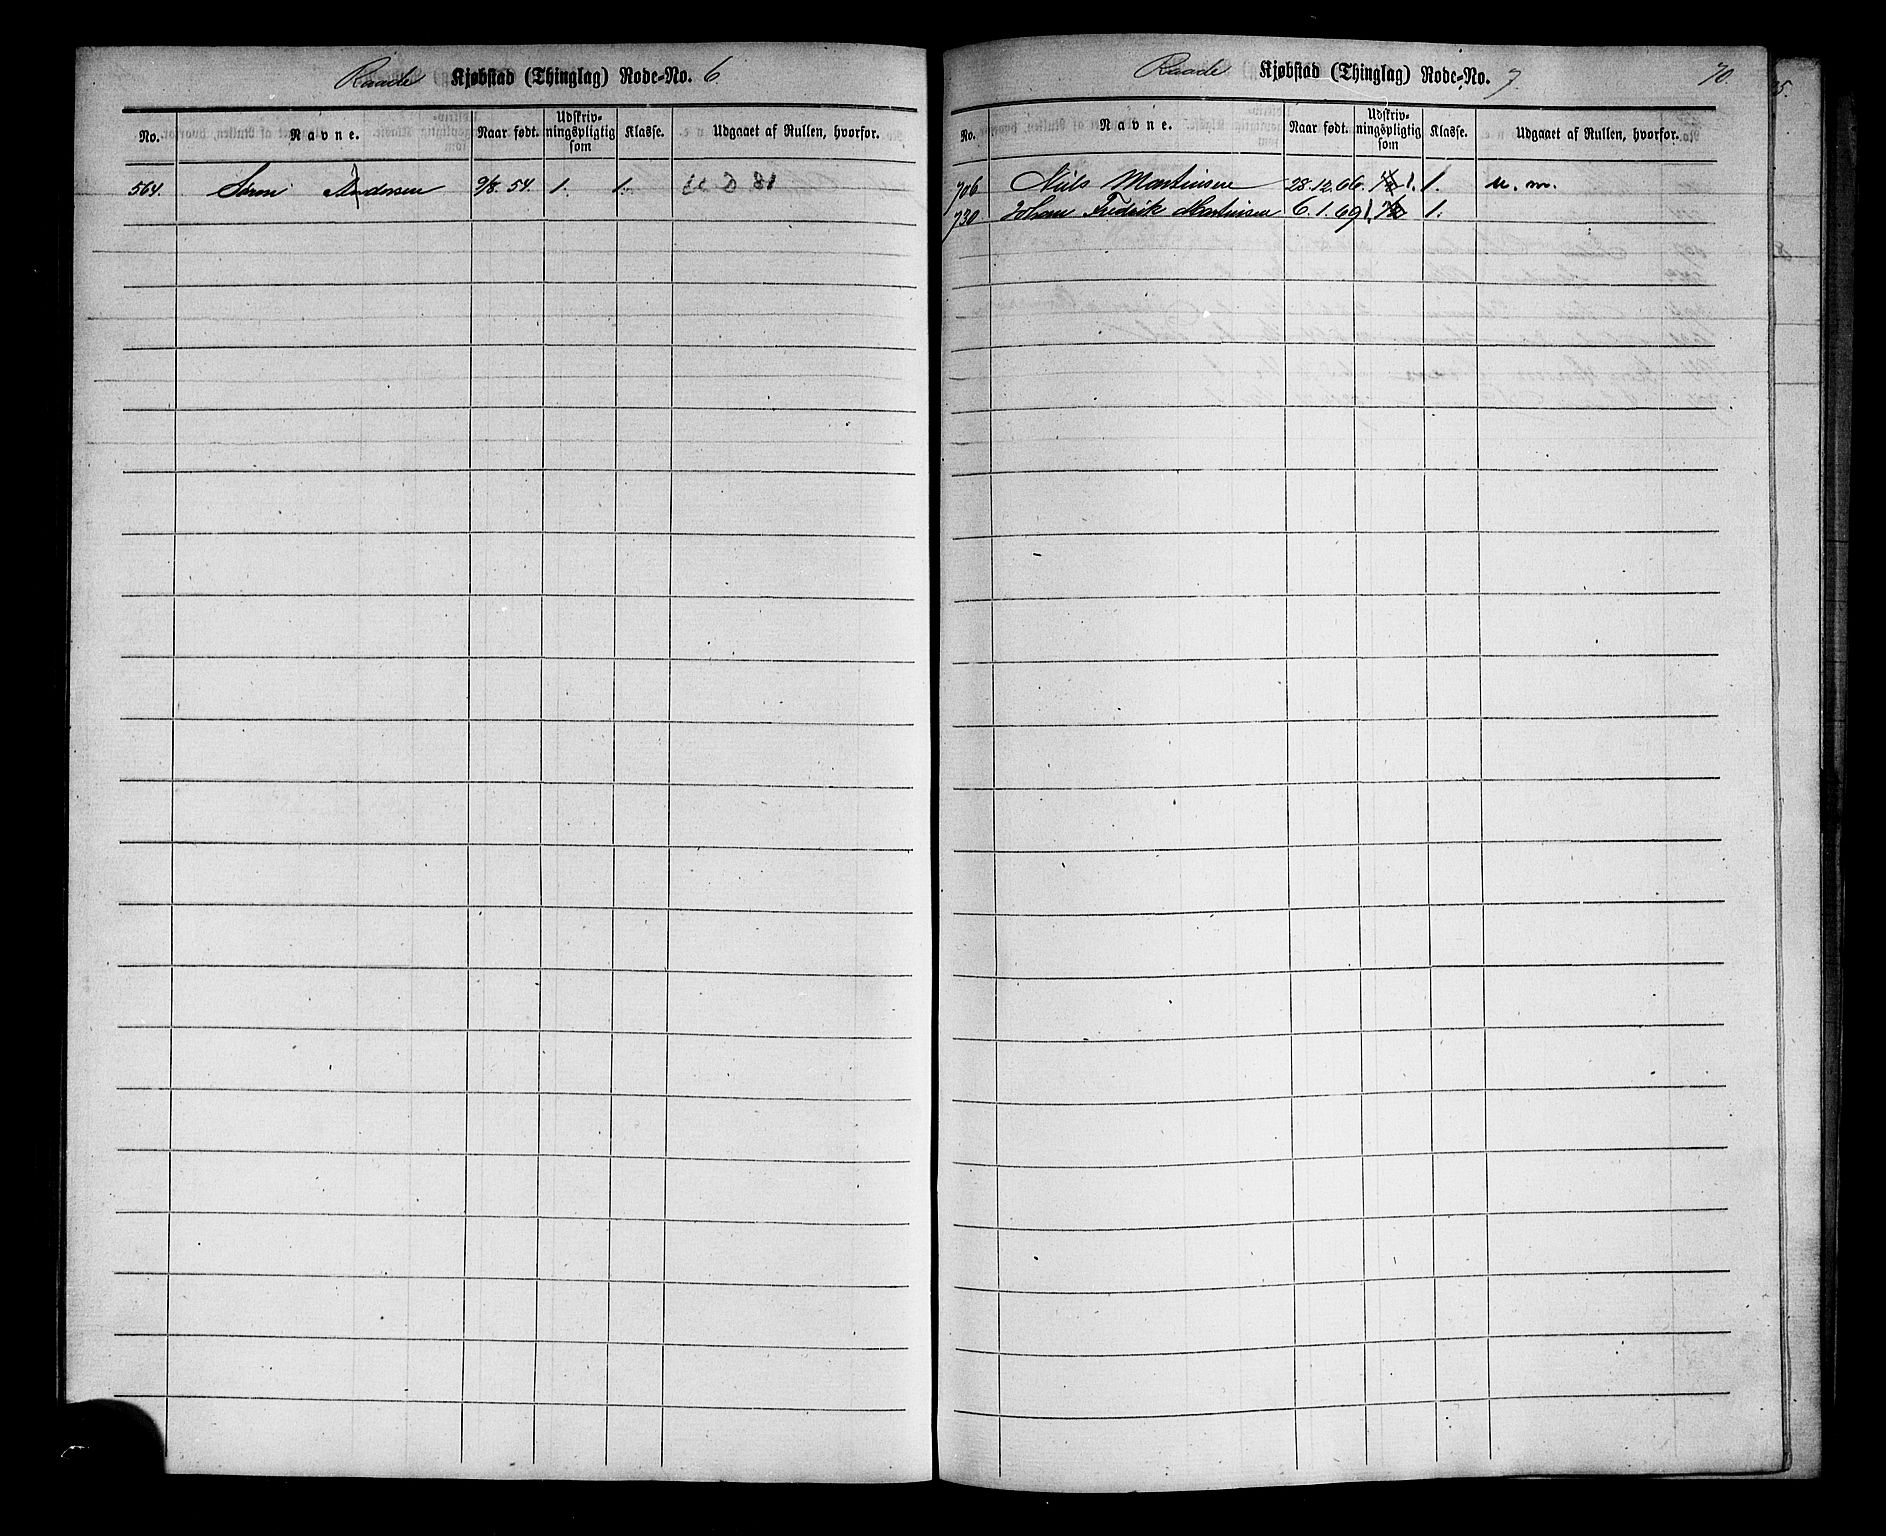 Raade Kjøbstad (Thinglag) Rode-No. 6
No. Navne. Naar født. Udskriv-ningspligtig som Klasse. Udgaaet af Rullen, hvorfor.
564. Søren Andersen 9/8. 54. 1. 1. U D 81
Raade Kjøbstad (Thinglag) Rode-No. 7 70.
No. Navne. Naar født. Udskriv-ningspligtig som Klasse. Udgaaet af Rullen, hvorfor.
706 Nils Martinsen 28.12.66. 1. 1. u. m.
730 Johan Fredrik Martinsen 6.1.69 1. 1.